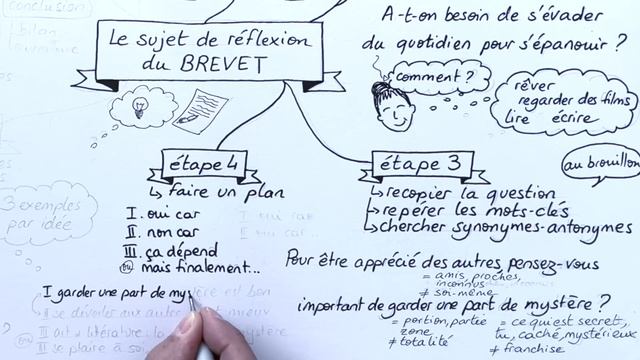 conclusion
bilan
A-t-on besoin de s'évader
du quotidien pour s'épanouir ?
Le sujet de réflexion
du BREVET
comment ?
rêver
regarder des films
lire écrire
au brouillon
étape 4
↳ faire un plan
I. oui car
II. non car
III. ça dépend
ou mais finalement...
étape 3
↳ recopier la question
↳ repérer les mots-clés
↳ chercher synonymes-antonymes
3 exemples
par idée
Pour être apprécié des autres pensez-vous
= amis, proches,
inconnus
≠ soi-même
important de garder une part de mystère ?
= portion, partie
zone
≠ totalité
= ce qui est secret,
tu, caché, mystérieux
≠ franchise
I garder une part de mystère est bon
II se dévoiler aux autres est mieux
III
III se plaire à soi